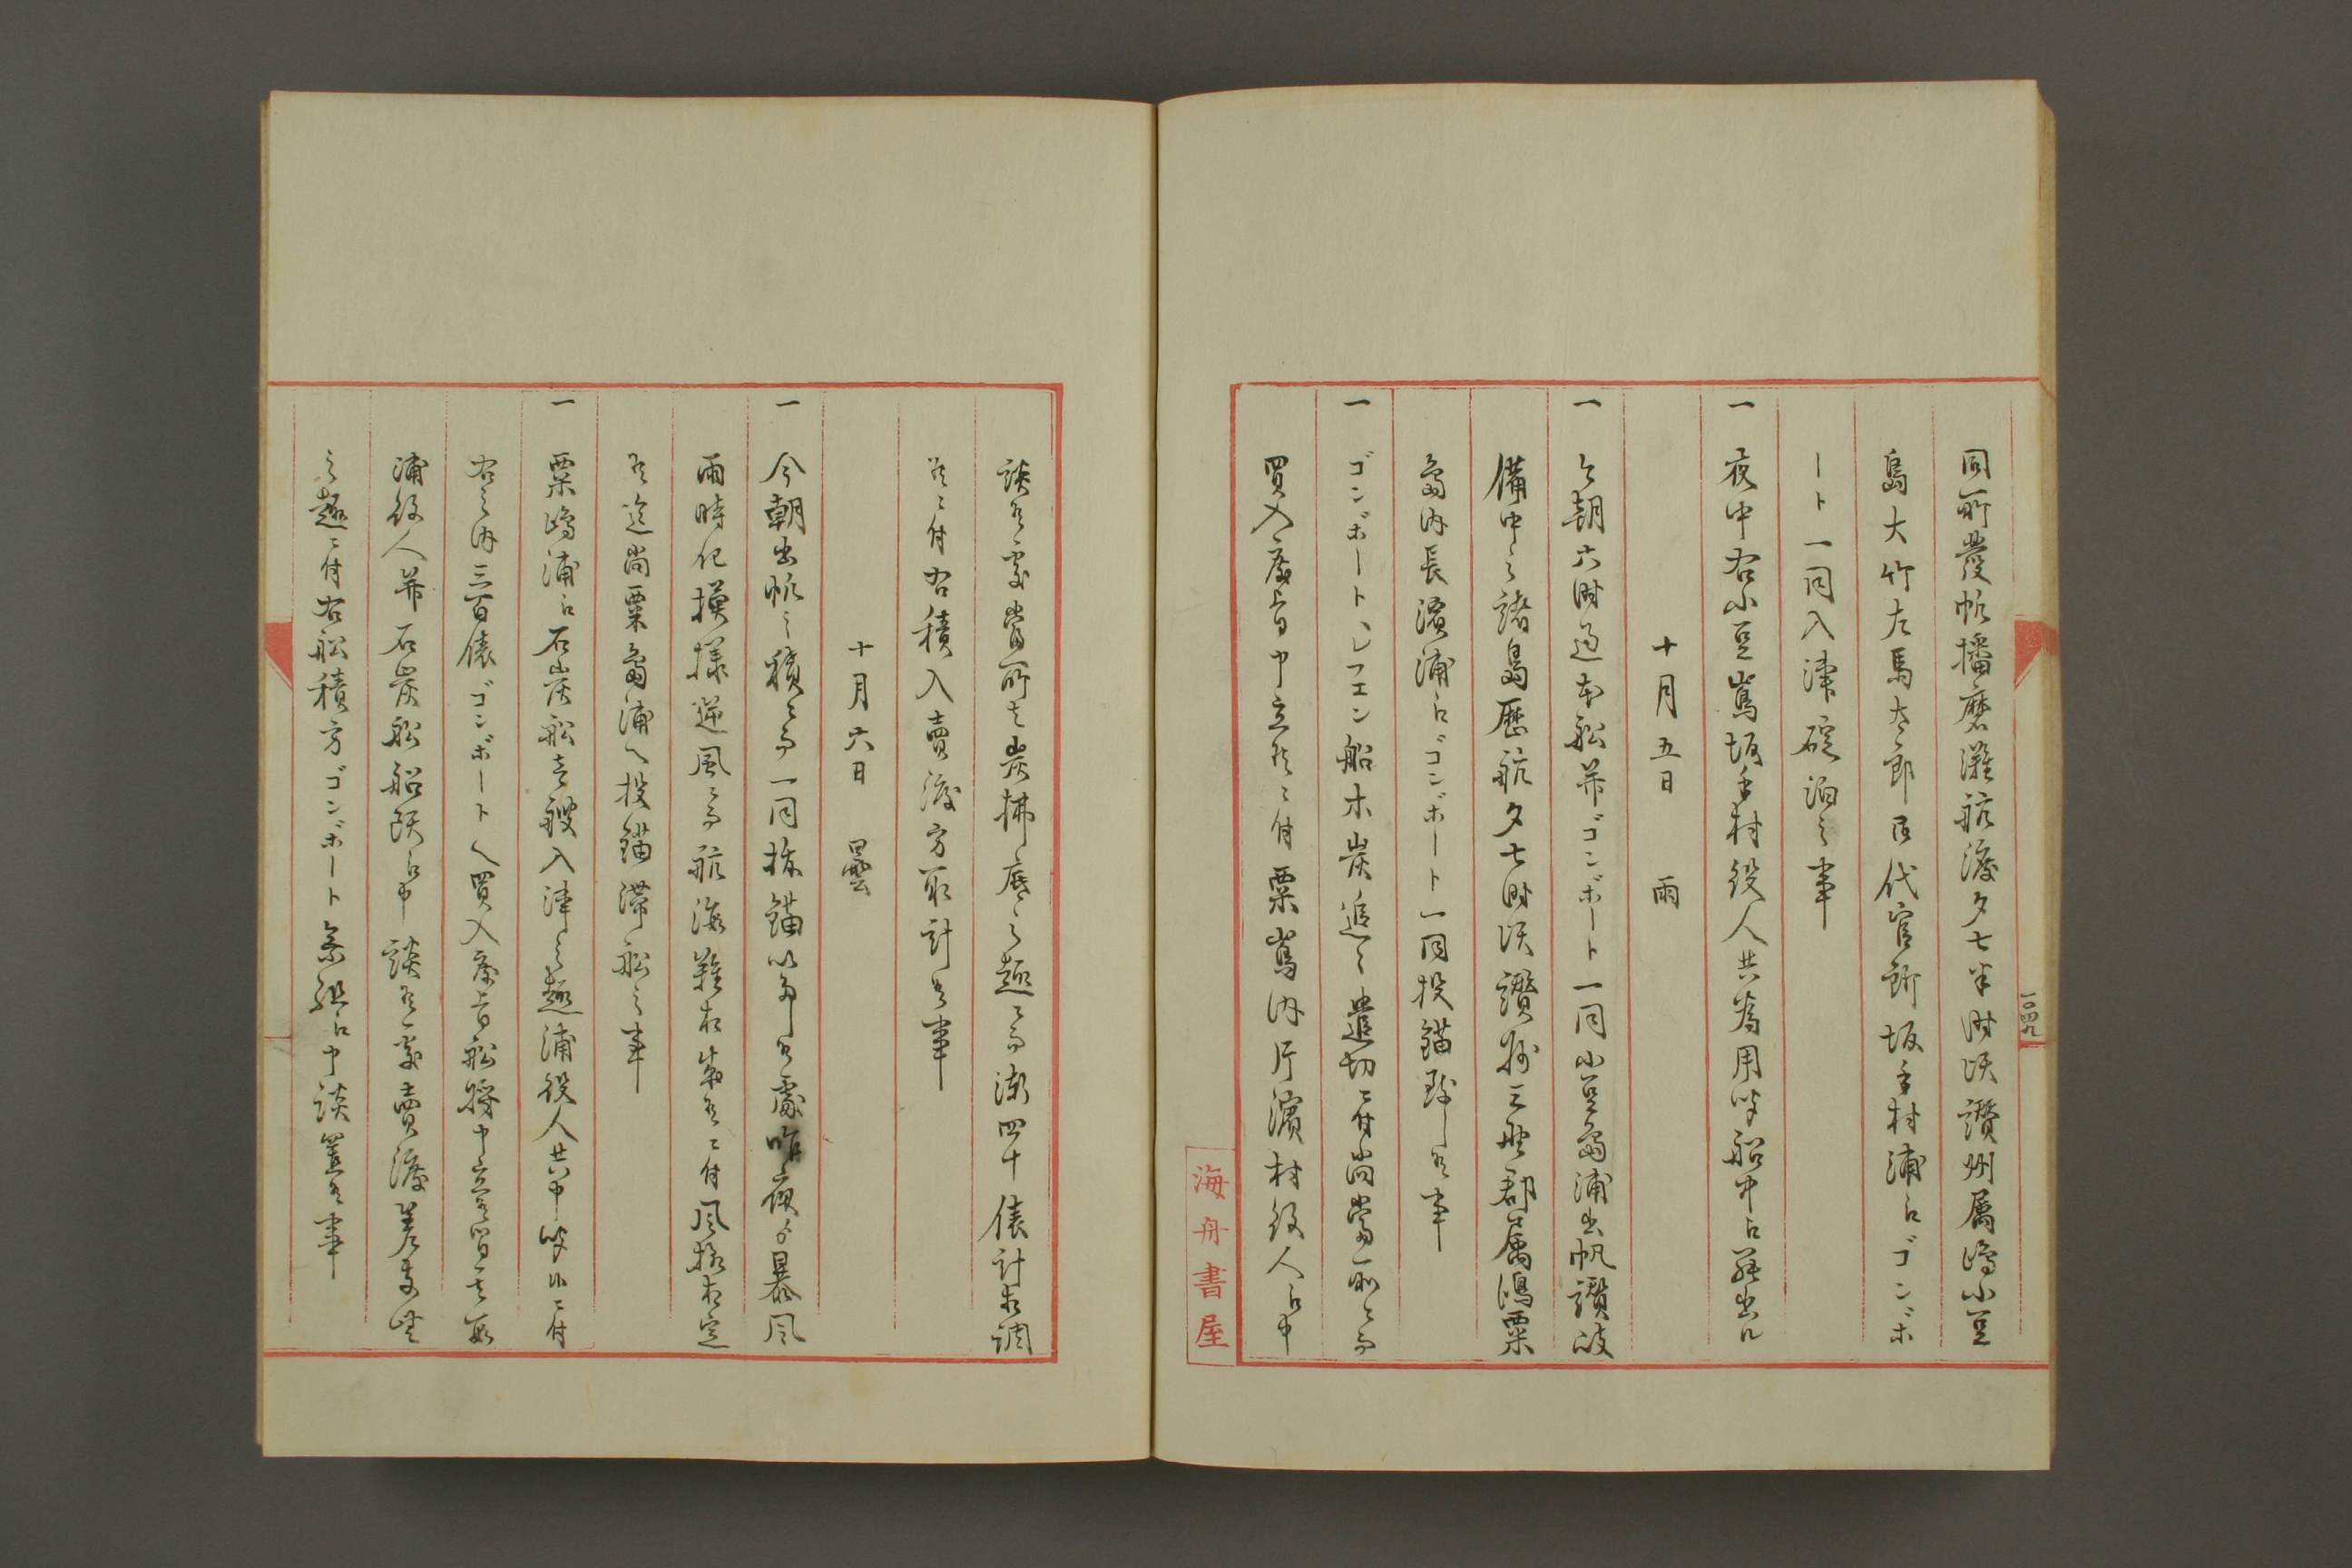 同所發帆播磨灘航渡夕七半時頃讚州属嶋小豆
島大竹左馬太郎御代官所坂手村浦江ゴンボ
ート一同入津碇泊之事
一 夜中右小豆嶌坂手村役人共為用伺船中江罷出ル
十月五日 雨
一 今朝六時過本船并ゴンボート一同小豆島浦出帆讚岐
備中之諸島歴航夕七時頃讚州三野郡属嶋粟
島内長濱浦江ゴンボート一同投錨致し候事
一 ゴンボート、レフエン船木炭追々遣切ニ付尚當所ニ而
買入度旨申立候ニ付粟嶌内片濱村役人江申
海舟書屋
一〇四九
談候処當所も炭拂底之趣ニ而漸四十俵計相調
候ニ付右積入賣渡方取計候事
十月六日 曇
一 今朝出帆之積ニ而一同抜錨いたし候處昨夜ゟ暴風
雨時化模様逆風ニ而航海難相成候ニ付風模相定
候迄尚粟島浦へ投錨滞船之事
一 粟嶋浦江石炭船壱艘入津之趣浦役人共申出候ニ付
右之内三百俵ゴンボートへ買入度旨船将申立候間其段
浦役人并石炭船船頭江申談候處賣渡差支無
之趣ニ付右船積方ゴンボート乗組江申談置候事